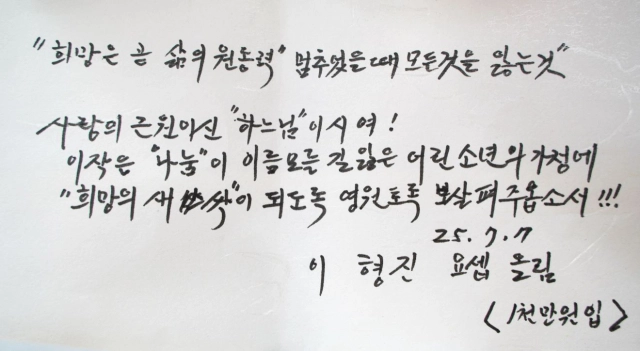 "희망은 곧 삶의 원동력" 멈추었을때 모든것을 잃는것"
사랑의 근원이신 "하느님"이시여!
이작은 "나눔"이 이름모를 길잃은 어린소년의가정에
"희망의 새싹"이 되도록 영원토록 보살펴주옵소서!!!
25. 7. 7
이 형진 요셉 올림
<1천만원입>